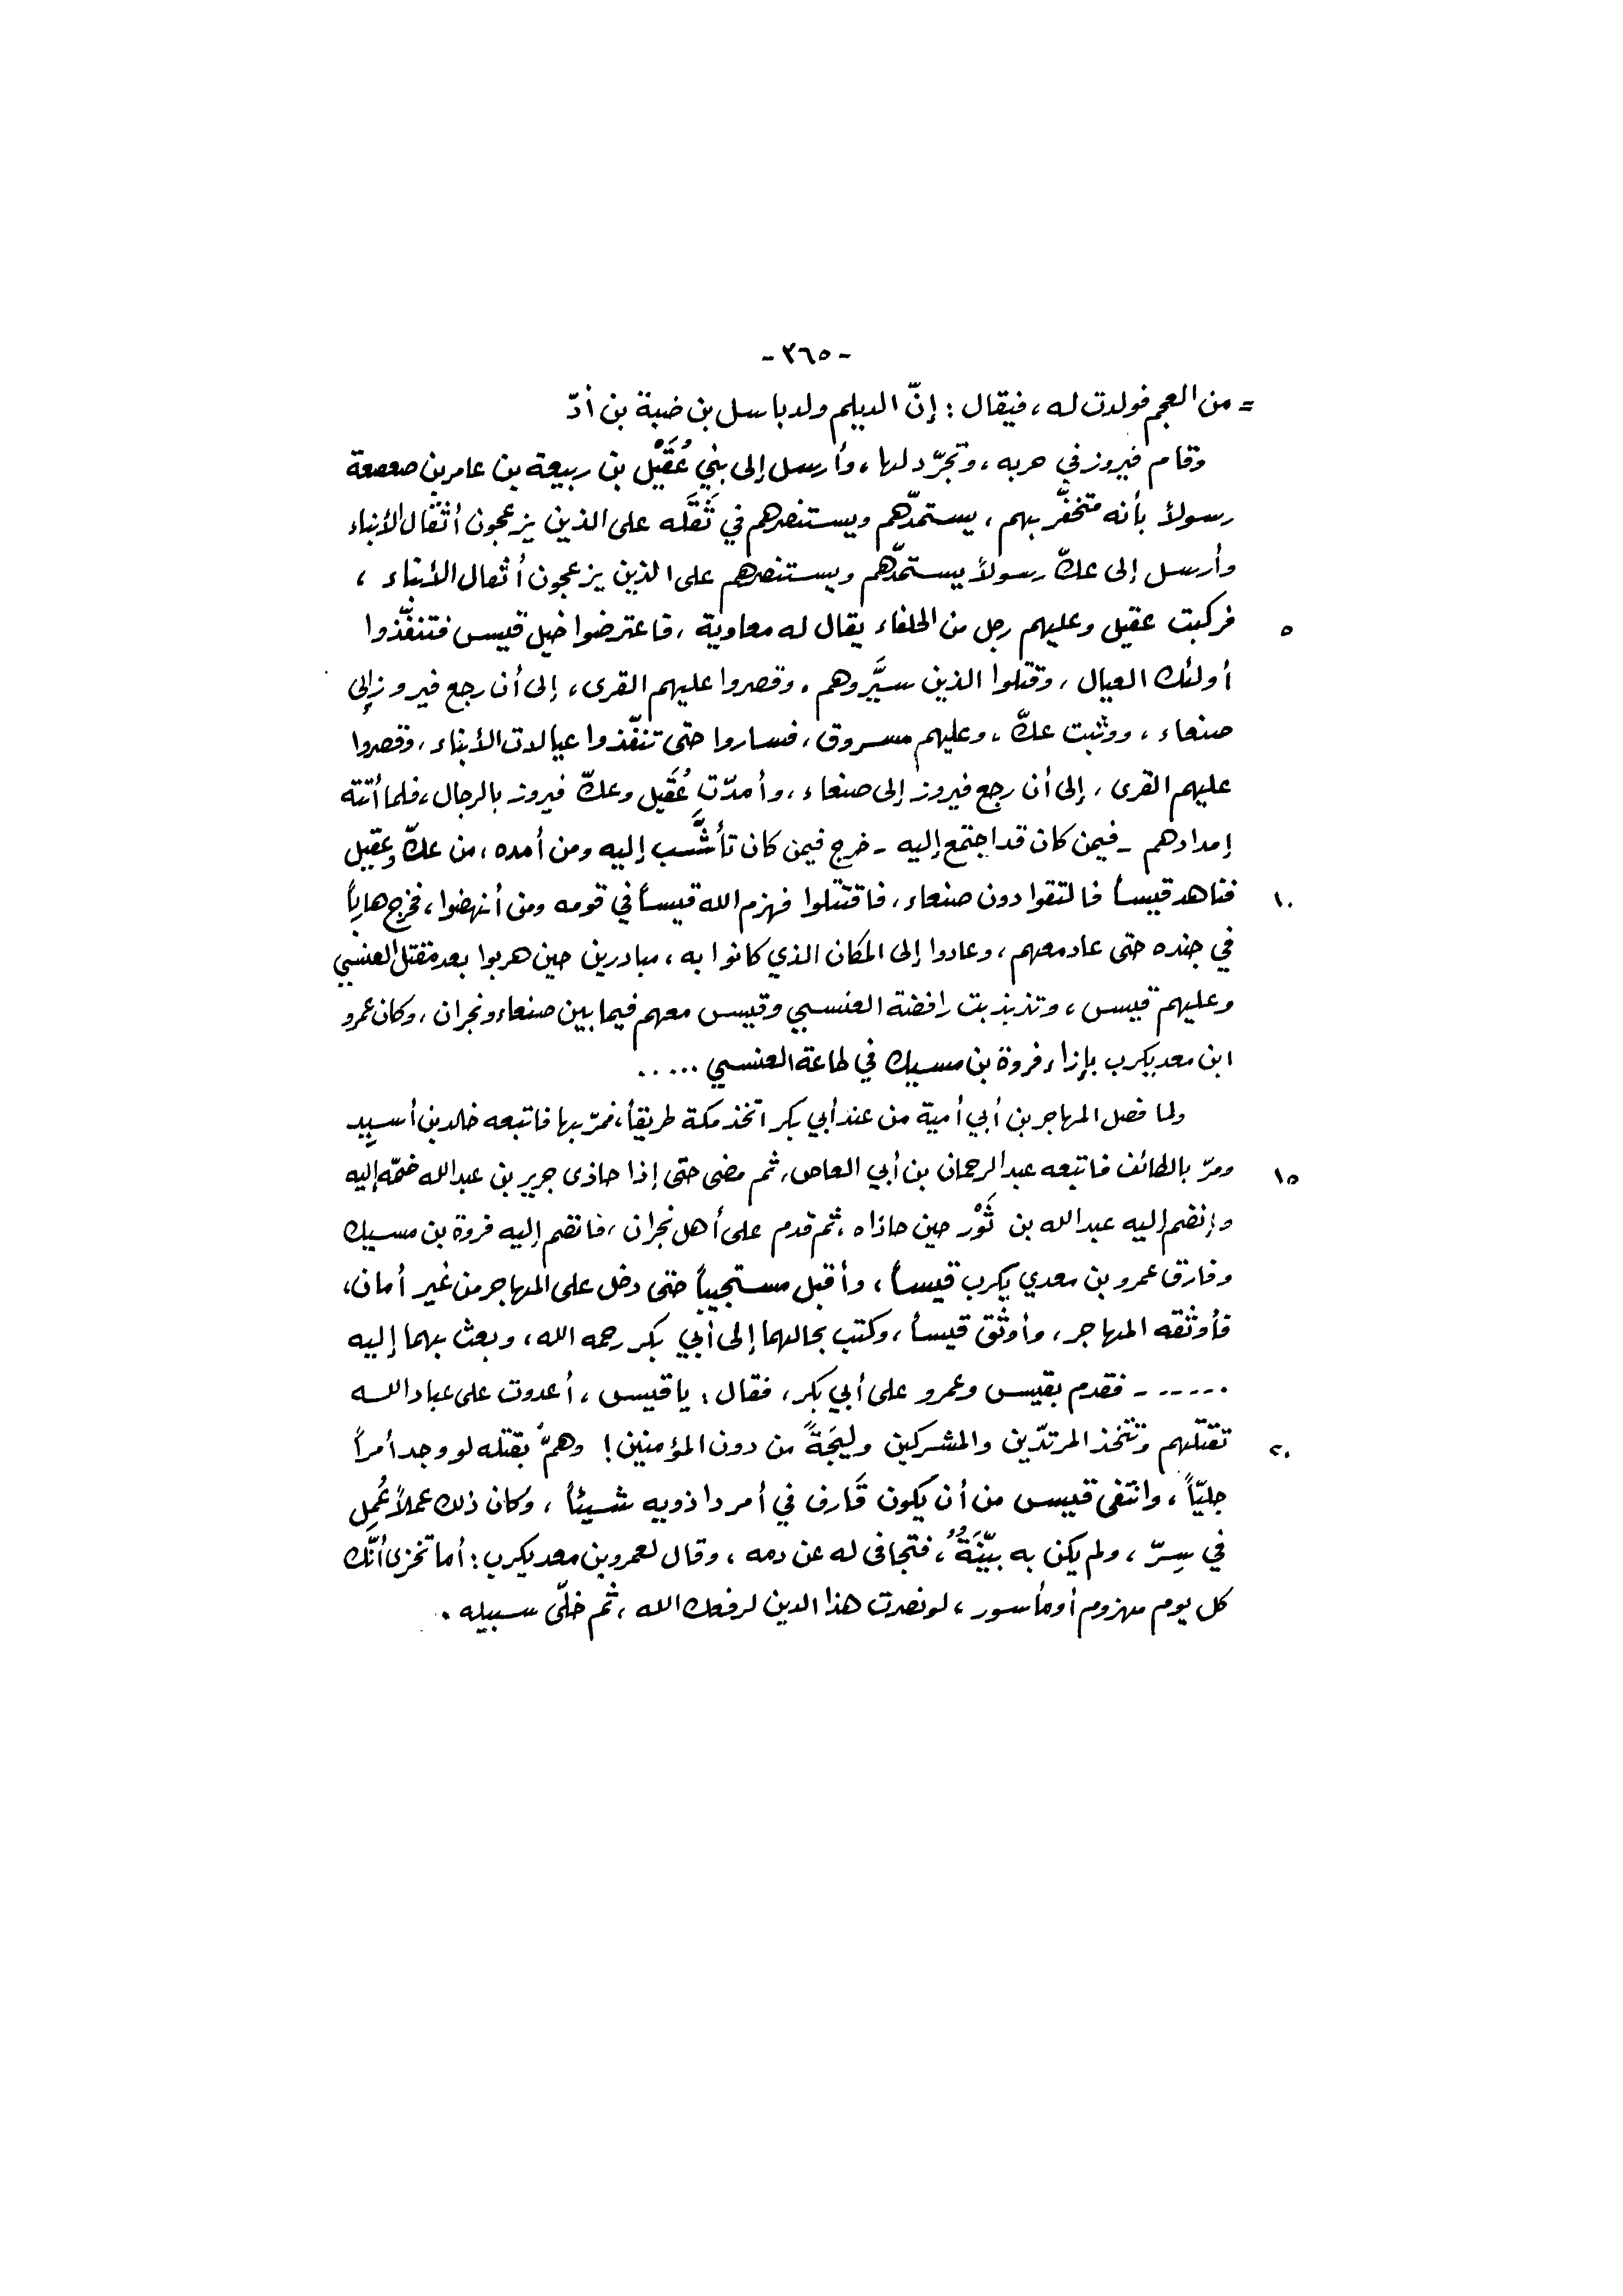 - ٣٦٥ -
= من العجم فولدت له ، فيقال : إنّ الديلم ولد باسل بن ضبة بن أدّ
وقام فيروز في حربه ، وتجرّد لها ، وأرسل إلى بني عُقَيْل بن ربيعة بن عامر بن صعصعة
رسولاً بأنه متخفّر بهم ، يستمدّهم ويستنصرهم في ثَقَله على الذين يزعجون أثقال الأبناء
وأرسل إلى عكّ رسولاً يستمدّهم ويستنصرهم على الذين يزعجون أثقال الأبناء ،
فركبت عقيل وعليهم رجل من الحلفاء يقال له معاوية ، فاعترضوا خيل قيس فتنقّذوا ٥
أولئك العيال ، وقتلوا الذين سيَّروهم . وقصروا عليهم القرى ، إلى أن رجع فيروز إلى
صنعاء ، ووثبت عكّ ، وعليهم مسروق ، فساروا حتى تنقّذوا عيالات الأبناء ، وقصروا
عليهم القرى ، إلى أن رجع فيروز إلى صنعاء ، وأمدّت عُقَيل وعكّ فيروز بالرجال ، فلما أتته
إمدادهم - فيمن كان قد اجتمع إليه - خرج فيمن كان تأشَّب إليه ومن أمده ، من عكّ وعقيل
فناهد قيساً فالتقوا دون صنعاء ، فاقتتلوا فهزم الله قيساً في قومه ومن أنهضوا ، فخرج هارباً ١٠
في جنده حتى عاد معهم ، وعادوا إلى المكان الذي كانوا به ، مبادرين حين هربوا بعد مقتل العنسي
وعليهم قيس ، وتذبذبت رافضة العنسي وقيس معهم فيما بين صنعاء ونجران ، وكان عمرو
ابن معد يكرب بإزاء فروة بن مسيك في طاعة العنسي .....
ولما فصل المهاجر بن أبي أمية من عند أبي بكر اتخذ مكة طريقاً ، فمرّ بها فاتبعه خالد بن أسيد
ومرّ بالطائف فاتبعه عبد الرحمان بن أبي العاص ، ثم مضى حتى إذا حاذى جرير بن عبد الله ضمّه إليه ١٥
وإنضم إليه عبد الله بن ثَوْر حين حاذاه ، ثم قدم على أهل نجران ، فانضم إليه فروة بن مسيك
وفارق عمرو بن معدي يكرب قيساً ، وأقبل مستجيباً حتى دخل على المهاجر من غير أمان ،
فأوثقه المهاجر ، وأوثق قيساً ، وكتب بحالهما إلى أبي بكر رحمه الله ، وبعث بهما إليه
...... - فقدم بقيس وعمرو على أبي بكر ، فقال : يا قيس ، أعدوت على عباد الله
تقتلهم وتتخذ المرتدّين والمشركين وليجَةً من دون المؤمنين ! وهمّ بقتله لو وجد أمراً ٢٠
جليّاً ، وانتفى قيس من أن يكون قَارف في أمر داذويه شيئاً ، وكان ذلك عملاً عُمِل
في سِرّ ، ولم يكن به بيّنَةٌ ، فتجافى له عن دمه ، وقال لعمرو بن معد يكرب : أما تخزى أنّك
كل يوم مهزوم أو مأسور ، لو نصرت هذا الدين لرفعك الله ، ثم خلّى سبيله .